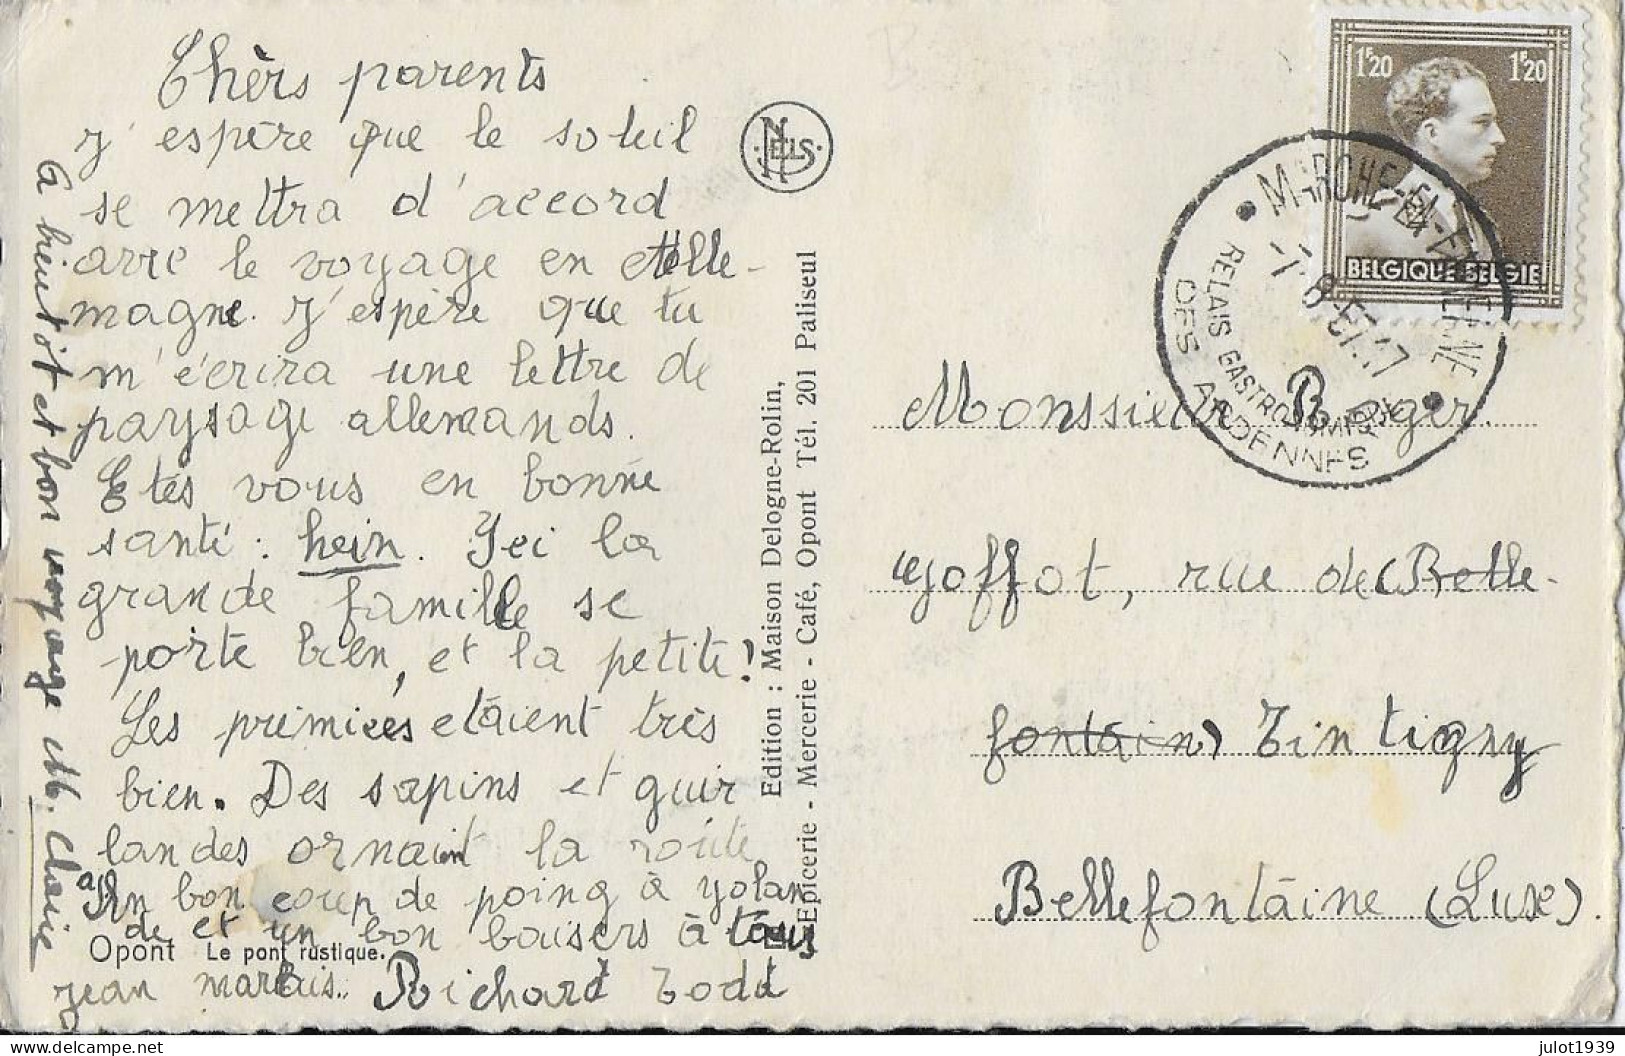 Chèrs parents
j'espère que le soleil
se mettra d'accord
avec le voyage en Alle-
magne. j'espère que tu
m'écrira une lettre de
paysage allemands.
Etes vous en bonne
santé : hein. Ici la
grande famille se
porte bien, et la petite!
Les primiees etáient très
bien. Des sapins et guir
landes ornaient la route
Un bon coup de poing à yolan
de et un bon baisers à tous
jean marbais.. Richard Todd
a bientôt et bon voyage M. Claire
Opont Le pont rustique.
NELS
Edition : Maison Delogne-Rolin,
Epicerie - Mercerie - Café, Opont Tél. 201 Paliseul
1F20 1F20
BELGIQUE-BELGIE
MARCHE-EN-FAMENNE
-7-8-57.17
RELAIS GASTRONOMIQUE
DES ARDENNES
Monssieur Roger.
Goffot, rue de Belle-
fontáin) Tintigny
Bellefontáine (Luxe).
julot1939